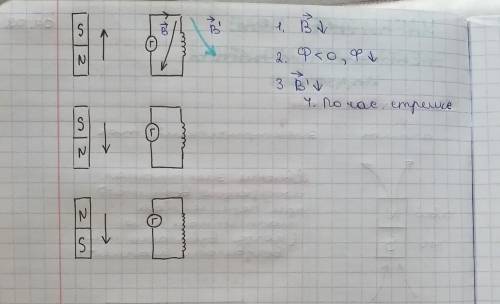 S
N
Г
B
B'
1. B↓
2. Ф<0, Ф↓
3 B'↓
4. По час. стрелке
S
N
Г
N
S
Г